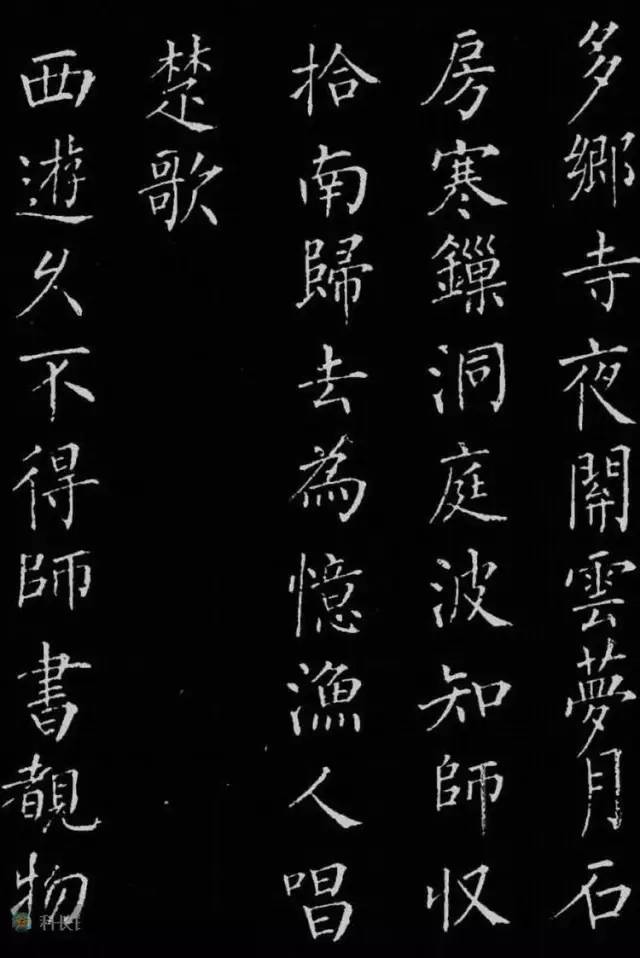 多鄉寺夜開雲夢月石
房寒鏁洞庭波知師収
拾南歸去為憶漁人唱
楚歌
西遊久不得師書覩物